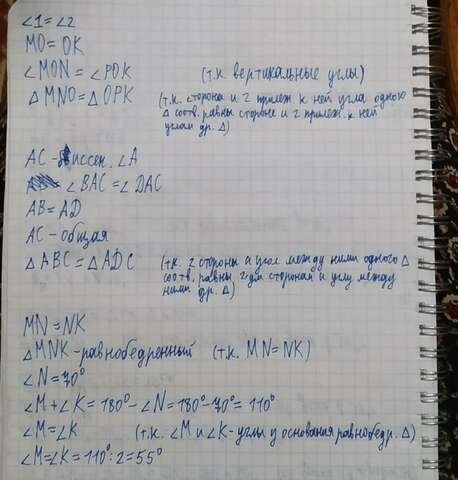 ∠1=∠2
MO=OK
∠MON=∠POK (т.к. вертикальные углы)
△MNO=△OPK (т.к. сторона и 2 прилеж. к ней угла одного
△ соотв. равны стороне и 2 прилеж. к ней
углам др. △)
AC - биссек. ∠A
∠BAC=∠DAC
AB=AD
AC-общая
△ABC=△ADC (т.к. 2 стороны и угол между ними одного △
соотв. равны 2-ум сторонам и углу между
ними др. △)
MN=NK
△MNK-равнобедренный (т.к. MN=NK)
∠N=70°
∠M+∠K=180°-∠N=180°-70°=110°
∠M=∠K (т.к. ∠M и ∠K-углы у основания равнобедр. △)
∠M=∠K=110°:2=55°